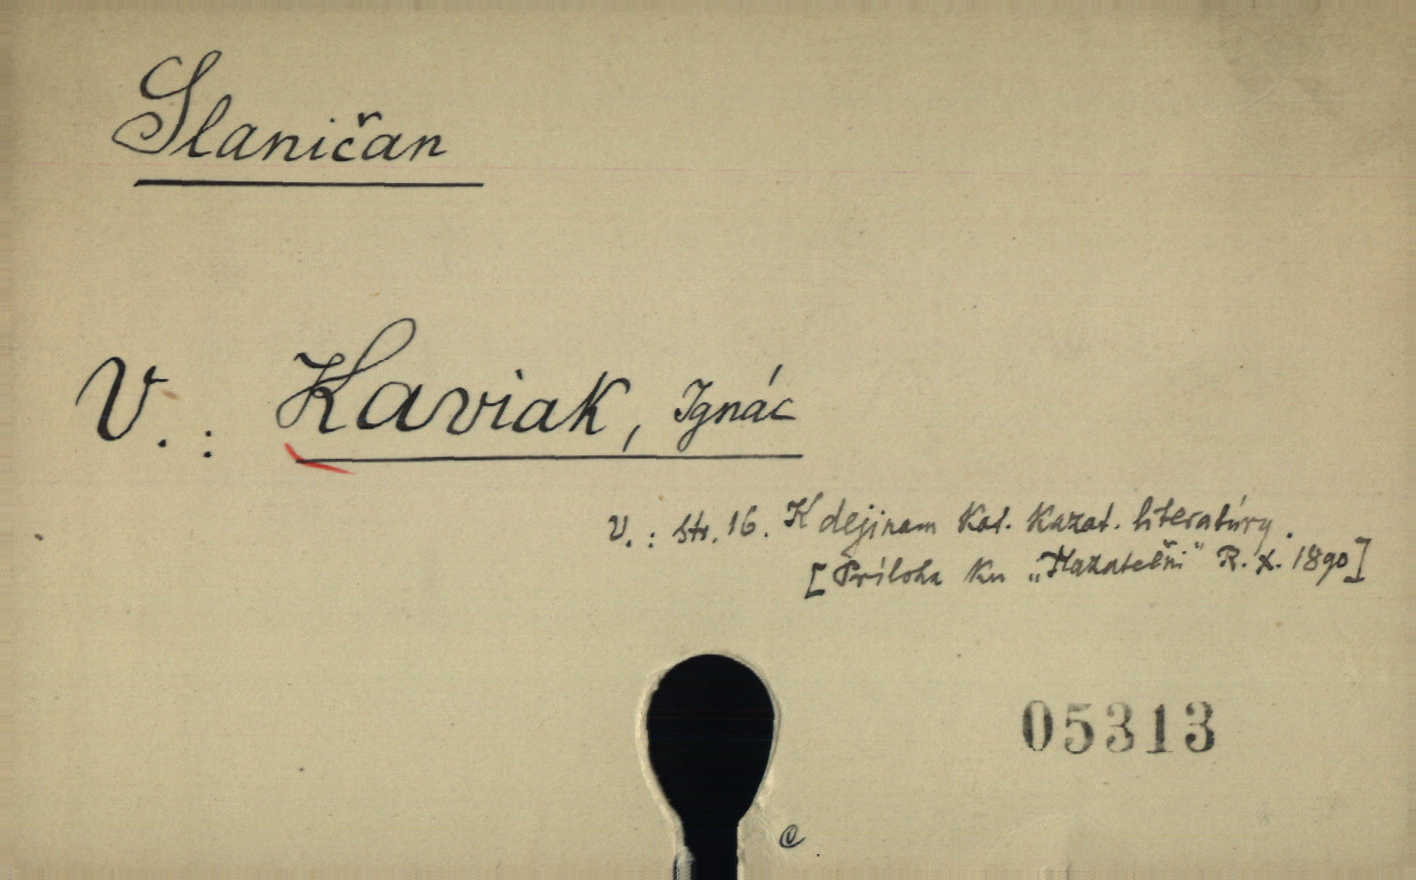 Slaničan
V. : Kaviak, Ignác
V. : str. 16. K dejinam Kat. Kazat. literatúry.
[Príloha Ku „Kazateľni" R. X. 1890]
05313
@